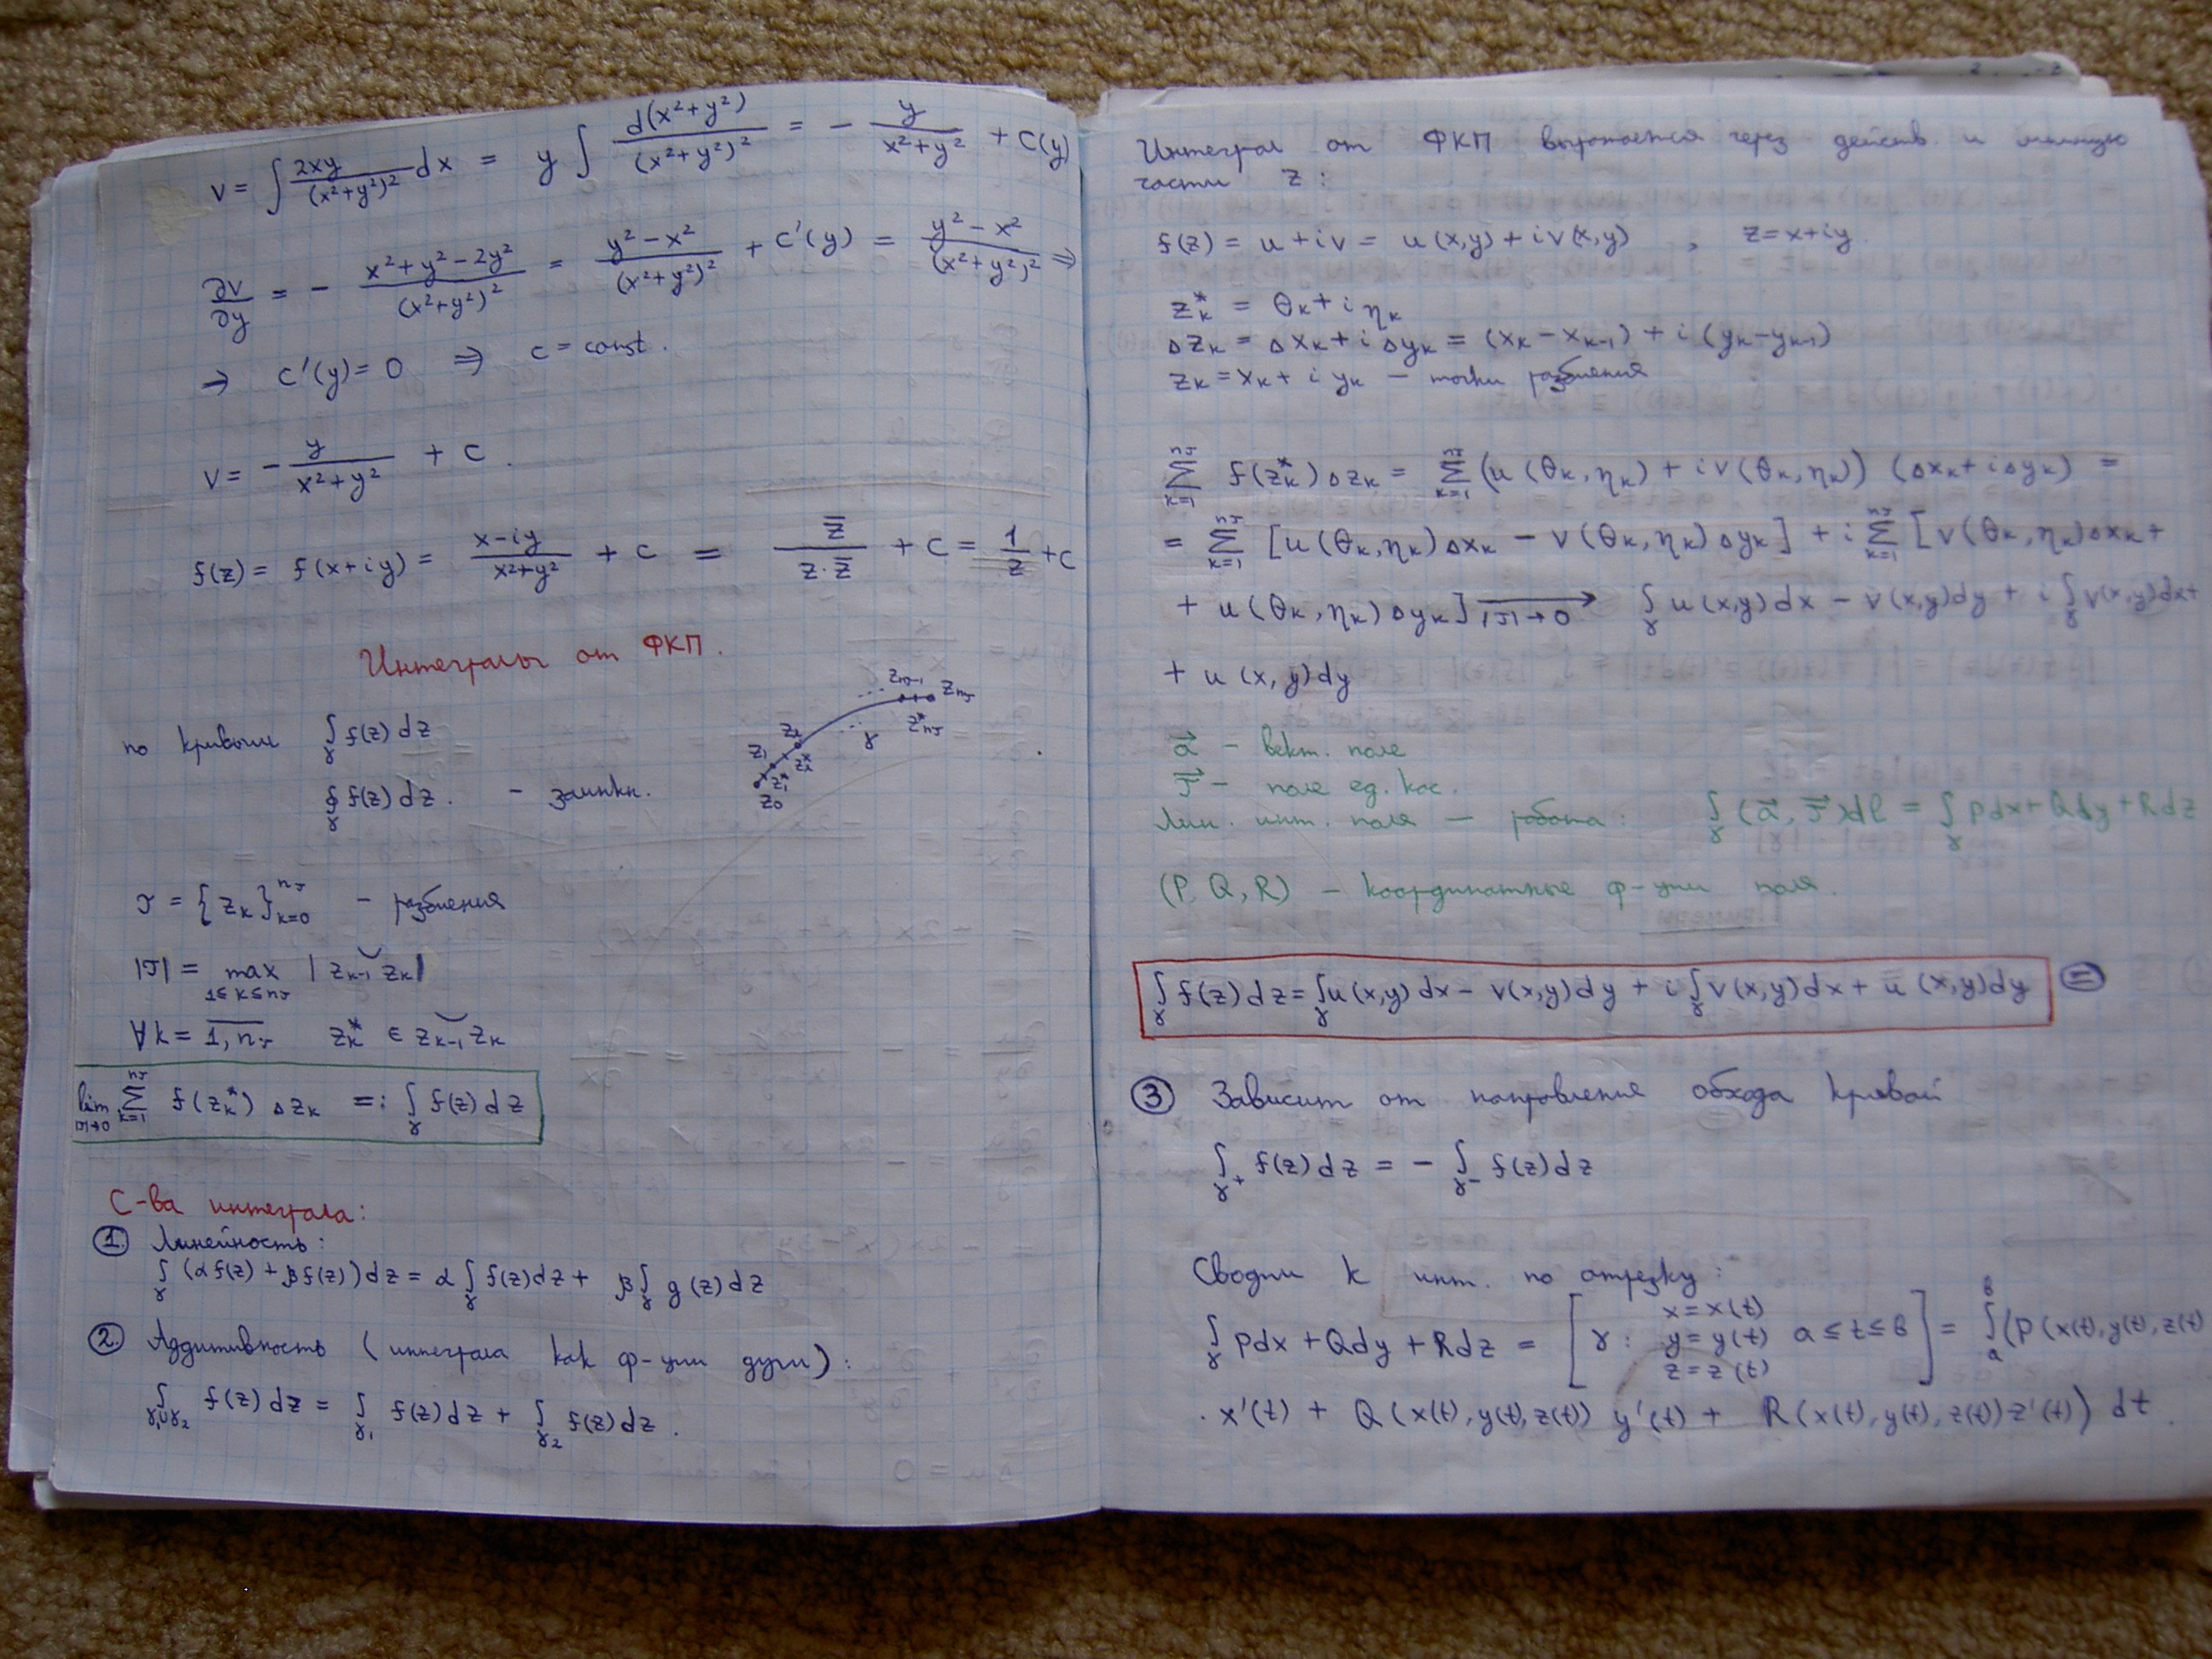 v = ∫ 2xy/(x²+y²)² dx = y ∫ d(x²+y²)/(x²+y²)² = − y/(x²+y²) + C(y)
∂v/∂y = − (x²+y²−2y²)/(x²+y²)² = (y²−x²)/(x²+y²)² + C'(y) = (y²−x²)/(x²+y²)² ⇒
⇒ C'(y) = 0 ⇒ C = const.
v = − y/(x²+y²) + C.
f(z) = f(x+iy) = (x−iy)/(x²+y²) + C = z̅/(z·z̅) + C = 1/z + C
Интегралы от ФКП.
по кривым ∫_γ f(z)dz
∮_γ f(z)dz. – замкн.
z₀ z₁ z₁* z₂ z₂* γ z_{n_τ−1} z*_{n_τ} z_{n_τ}
τ = {z_k}_{k=0}^{n_τ} – разбиения
|τ| = max_{1≤k≤n_τ} |z_{k−1} z_k|
∀k = 1,n_τ z_k* ∈ z_{k−1} z_k
lim_{|τ|→0} ∑_{k=1}^{n_τ} f(z_k*) Δz_k =: ∫_γ f(z)dz
С-ва интеграла:
① Линейность:
∫_γ (αf(z) + βf(z))dz = α∫_γ f(z)dz + β∫_γ g(z)dz
② Аддитивность (интеграла как ф-ции дуги):
∫_{γ₁∪γ₂} f(z)dz = ∫_{γ₁} f(z)dz + ∫_{γ₂} f(z)dz.
Интеграл от ФКП выражается через действ. и мнимую
части z:
f(z) = u + iv = u(x,y) + iv(x,y) , z = x+iy.
z_k* = θ_k + iη_k
Δz_k = Δx_k + iΔy_k = (x_k − x_{k−1}) + i(y_k − y_{k−1})
z_k = x_k + iy_k – точки разбиения
∑_{k=1}^{n_τ} f(z_k*)Δz_k = ∑_{k=1}^{n_τ} (u(θ_k,η_k) + iv(θ_k,η_k)) (Δx_k + iΔy_k) =
= ∑_{k=1}^{n_τ} [u(θ_k,η_k)Δx_k − v(θ_k,η_k)Δy_k] + i∑_{k=1}^{n_τ} [v(θ_k,η_k)Δx_k +
+ u(θ_k,η_k)Δy_k] →_{|τ|→0} ∫_γ u(x,y)dx − v(x,y)dy + i∫_γ v(x,y)dx +
+ u(x,y)dy
a⃗ – вект. поле
τ⃗ – поле ед. кас.
Лин. инт. поля – работа: ∫_γ (a⃗, τ⃗)dl = ∫_γ Pdx + Qdy + Rdz
(P, Q, R) – координатные ф-ции поля.
∫_γ f(z)dz = ∫_γ u(x,y)dx − v(x,y)dy + i∫_γ v(x,y)dx + u(x,y)dy ⊜
③ Зависит от направления обхода кривой
∫_{γ+} f(z)dz = − ∫_{γ−} f(z)dz
Сводим к инт. по отрезку:
∫_γ Pdx + Qdy + Rdz = [γ: x=x(t) y=y(t) z=z(t) a≤t≤b] = ∫_a^b (P(x(t),y(t),z(t)
· x'(t) + Q(x(t),y(t),z(t)) y'(t) + R(x(t),y(t),z(t))z'(t)) dt.